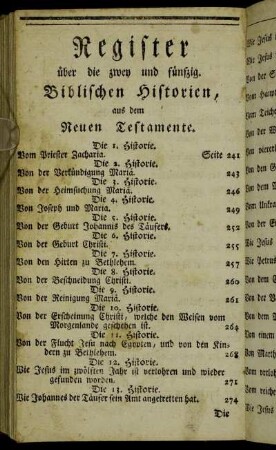 Register
über die zwey und fünfzig
Biblischen Historien,
aus dem
Neuen Testamente.
Die 1. Historie.
Vom Priester Zacharia. Seite 241
Die 2. Historie.
Von der Verkündigung Mariä. 243
Die 3. Historie.
Von der Heimsuchung Mariä. 246
Die 4. Historie.
Von Joseph und Maria. 249
Die 5. Historie.
Von der Geburt Johannis des Täufers. 252
Die 6. Historie.
Von der Geburt Christi. 255
Die 7. Historie.
Von den Hirten zu Bethlehem. 257
Die 8. Historie.
Von der Beschneidung Christi. 260
Die 9. Historie.
Von der Reinigung Mariä. 261
Die 10. Historie.
Von der Erscheinung Christi, welche den Weisen vom
Morgenlande geschehen ist. 264
Die 11. Historie.
Von der Flucht Jesu nach Egypten, und von den Kin-
dern zu Bethlehem. 268
Die 12. Historie.
Wie Jesus im zwölften Jahr ist verlohren und wieder
gefunden worden. 271
Die 13. Historie.
Wie Johannes der Täufer sein Amt angetretten hat. 274
Die